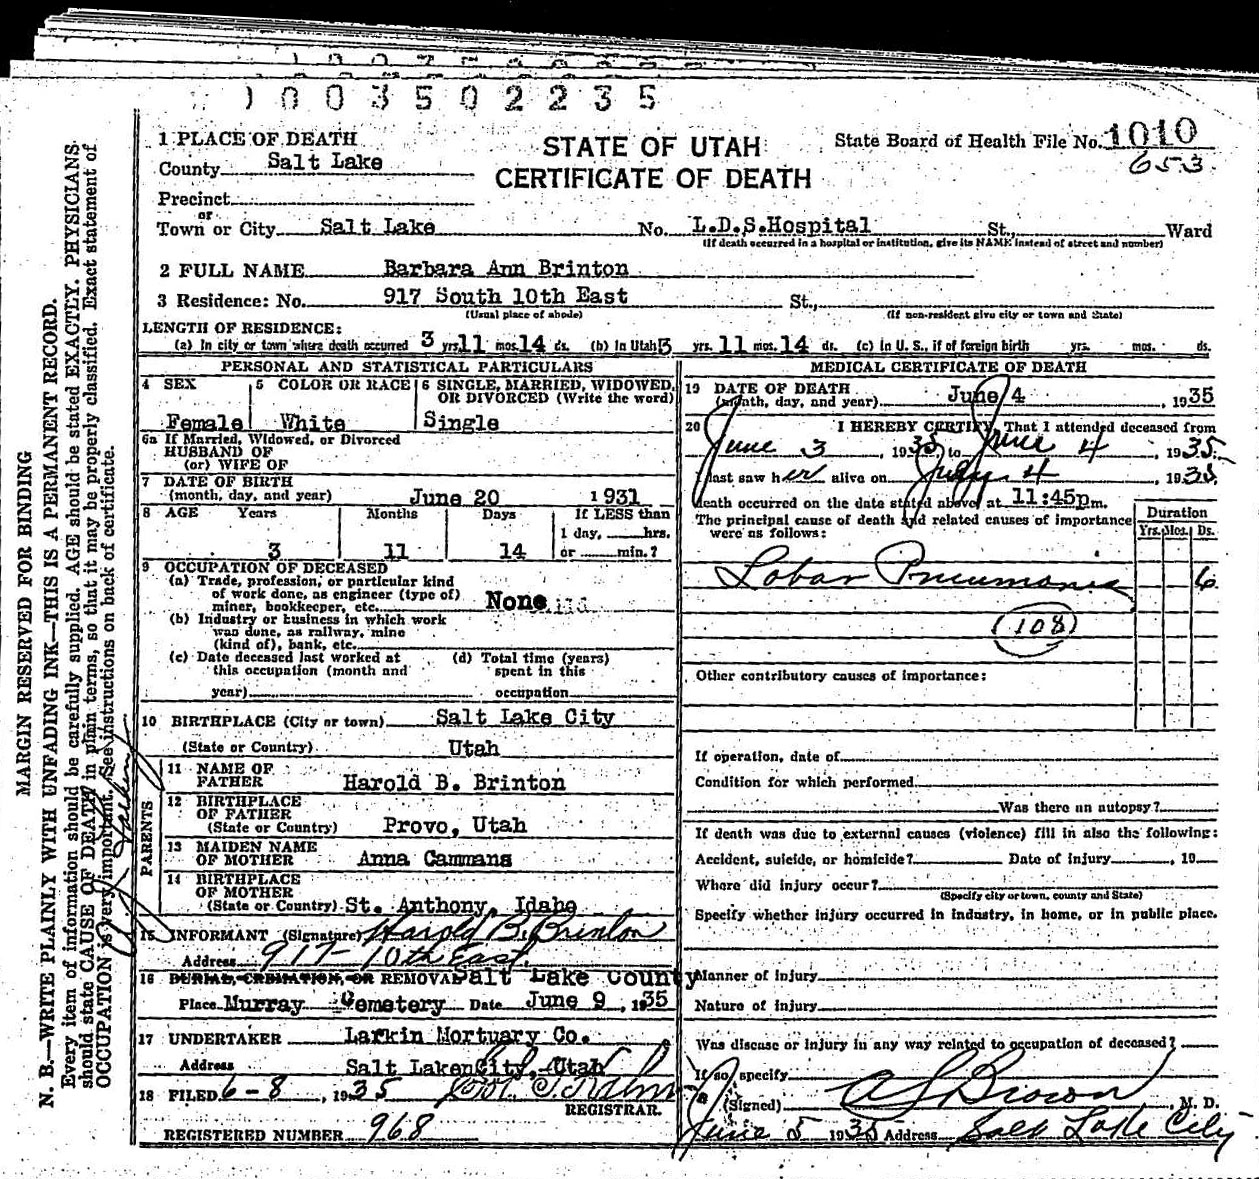 1003502235
1 PLACE OF DEATH
STATE OF UTAH
State Board of Health File No. 1010
County Salt Lake
CERTIFICATE OF DEATH
653
Precinct
or
Town or City Salt Lake No. L.D.S.Hospital St., Ward
(If death occurred in a hospital or institution, give its NAME instead of street and number)
2 FULL NAME Barbara Ann Brinton
3 Residence: No. 917 South 10th East St.,
(Usual place of abode) (If non-resident give city or town and State)
LENGTH OF RESIDENCE:
(a) In city or town where death occurred 3 yrs. 11 mos. 14 ds. (b) In Utah 3 yrs. 11 mos. 14 ds. (c) In U. S., if of foreign birth yrs. mos. ds.
PERSONAL AND STATISTICAL PARTICULARS
4 SEX 5 COLOR OR RACE 6 SINGLE, MARRIED, WIDOWED, OR DIVORCED (Write the word)
Female White Single
6a If Married, Widowed, or Divorced
HUSBAND OF
(or) WIFE OF
7 DATE OF BIRTH
(month, day, and year) June 20 1931
8 AGE Years Months Days If LESS than
1 day, hrs.
3 11 14 or min.?
9 OCCUPATION OF DECEASED
(a) Trade, profession, or particular kind
of work done, as engineer (type of)
miner, bookkeeper, etc. None
(b) Industry or business in which work
was done, as railway, mine
(kind of), bank, etc.
(c) Date deceased last worked at (d) Total time (years)
this occupation (month and spent in this
year) occupation
10 BIRTHPLACE (City or town) Salt Lake City
(State or Country) Utah
PARENTS
11 NAME OF
FATHER Harold B. Brinton
12 BIRTHPLACE
OF FATHER
(State or Country) Provo, Utah
13 MAIDEN NAME
OF MOTHER Anna Cammans
14 BIRTHPLACE
OF MOTHER
(State or Country) St. Anthony, Idaho
15 INFORMANT (Signature) Harold B. Brinton
Address 917- 10th East.
16 BURIAL, CREMATION, OR REMOVAL Salt Lake County
Place Murray Cemetery Date June 9, 1935
17 UNDERTAKER Larkin Mortuary Co.
Address Salt Lake City, Utah
18 FILED 6-8, 1935
REGISTRAR.
REGISTERED NUMBER 968
MEDICAL CERTIFICATE OF DEATH
19 DATE OF DEATH
(month, day, and year) June 4, 1935
20 I HEREBY CERTIFY, That I attended deceased from
June 3, 1935, to June 4, 1935.
I last saw her alive on 4, 1935.
death occurred on the date stated above, at 11:45p m.
The principal cause of death and related causes of importance
were as follows:
Duration
Yrs. Mos. Ds.
Lobar Pneumonia 6
(108)
Other contributory causes of importance:
If operation, date of
Condition for which performed
Was there an autopsy?
If death was due to external causes (violence) fill in also the following:
Accident, suicide, or homicide? Date of injury, 19
Where did injury occur?
(Specify city or town, county and State)
Specify whether injury occurred in industry, in home, or in public place.
Manner of injury
Nature of injury
Was disease or injury in any way related to occupation of deceased?
If so, specify
(Signed) A S Brown, M. D.
June 5 1935 Address Salt Lake City
MARGIN RESERVED FOR BINDING
N. B.—WRITE PLAINLY WITH UNFADING INK—THIS IS A PERMANENT RECORD.
Every item of information should be carefully supplied. AGE should be stated EXACTLY. PHYSICIANS
should state CAUSE OF DEATH in plain terms, so that it may be properly classified. Exact statement of
OCCUPATION is very important. See instructions on back of certificate.